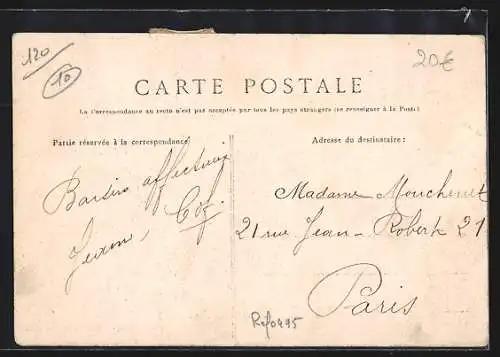 120
10
20€
CARTE POSTALE
La Correspondance au recto n'est pas acceptée par tous les pays étrangers (se renseigner à la Poste)
Partie réservée à la correspondance
Adresse du destinataire :
Baisers affectueux
Madame Mouchenet
21 rue Jean-Robert 21
Paris
Ref0495